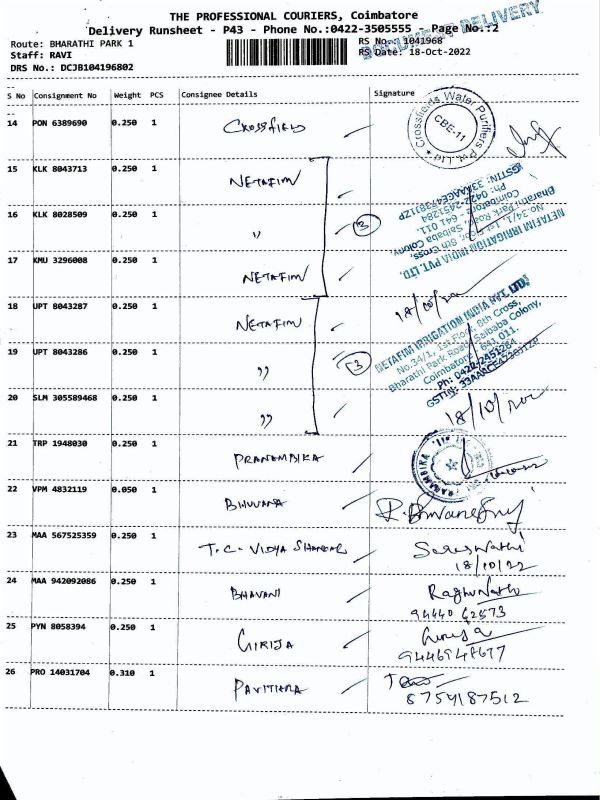 THE PROFESSIONAL COURIERS, Coimbatore
Delivery Runsheet - P43 - Phone No.:0422-3505555 - Page No.:2
DOCUMENT DELIVERY
Route: BHARATHI PARK 1
RS No.: 1041968
Staff: RAVI
RS Date: 18-Oct-2022
DRS No.: DCJB104196802
S No Consignment No Weight PCS Consignee Details Signature
14 PON 6389690 0.250 1 CROSSFIELD
Crossfields Water Purifiers Pvt. Ltd
CBE-11
15 KLK 8043713 0.250 1 NETAFIM
16 KLK 8028509 0.250 1 〃 3
17 KMU 3296008 0.250 1 NETAFIM
NETAFIM IRRIGATION INDIA PVT. LTD.
No.34/1, 1st Floor, 8th Cross,
Bharathi Park Road, Saibaba Colony,
Coimbatore - 641 011.
Ph: 0422-2451284
GSTIN: 33AAACE4738J1ZP
18 UPT 8043287 0.250 1 NETAFIM
19 UPT 8043286 0.250 1 〃 3
20 SLM 305589468 0.250 1 〃
NETAFIM IRRIGATION INDIA PVT. LTD.
No.34/1, 1st Floor, 8th Cross,
Bharathi Park Road, Saibaba Colony,
Coimbatore - 641 011.
Ph: 0422-2451284
GSTIN: 33AAACE4738J1ZP
21 TRP 1948030 0.250 1 PRANAMBIKA
22 VPM 4832119 0.050 1 BHUVANA
23 MAA 567525359 0.250 1 T.C. VIDYA SHANKAR
Saraswathi
18/10/22
24 MAA 942092086 0.250 1 BHAVANI
Raghunath
94440 62573
25 PYN 8058394 0.250 1 GIRIJA
Girija
9446948677
26 PRO 14031704 0.310 1 PAVITHRA
8754187512